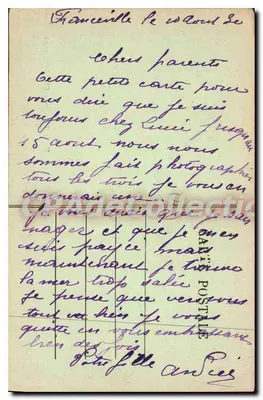 Franceville le 10 Aout 30
Chers parents
Cette petite carte pour
vous dire que je suis
toujours chez Lucie jusqu'au
15 aout nous nous
sommes fait photographier
tous les trois je vous en
que je sais
nager et que je m'en
suis payée mais
maintenant je trouve
la mer trop salée
je pense que chez vous
tout va bien je vous
quitte en vous embrassant
bien des fois
Votre fille
CARTE POSTALE